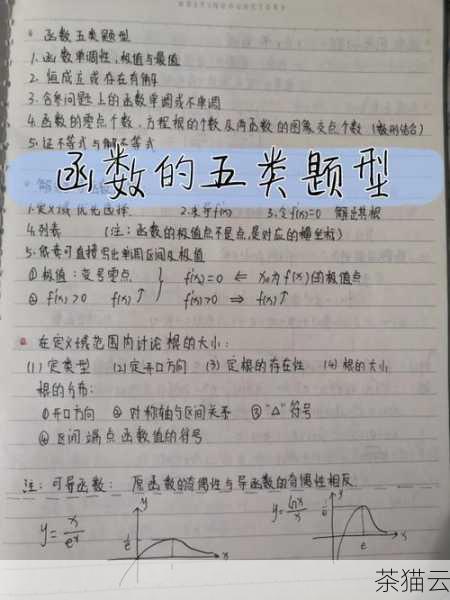 函数五类题型
1. 函数单调性, 极值与最值
2. 恒成立或存在有解
3. 含参问题上的函数单调或不单调
4. 函数的零点个数、方程根的个数及两函数的图象交点个数 (数形结合)
5. 证不等式与解不等式
函数的五类题型
1. 定义域 优先选择. 2. 求导f'(x) 3. 令f'(x)=0 解出其根
4. 列表 (注: 函数的极值点不是点, 是对应的横坐标)
5. 依表可直接写出单调区间及极值
① 极值: 变号零点 } f'(x₀)=0 ⇐ x₀为f(x)的极值点
② f'(x)>0 f(x)↑ f'(x)>0 ⇒ f(x)↑
在定义域范围内讨论根的大小:
(1) 定类型 (2) 定开口方向 (3) 定根的存在性 (4) 根的大小
根的分布:
①开口方向 ② 对称轴与区间关系 ③ "Δ"符号
④ 区间端点函数值的符号
注: 可导函数: 原函数的奇偶性与导函数的奇偶性相反
y=x/eˣ y x 1 y=lnx/x y x e
茶猫云